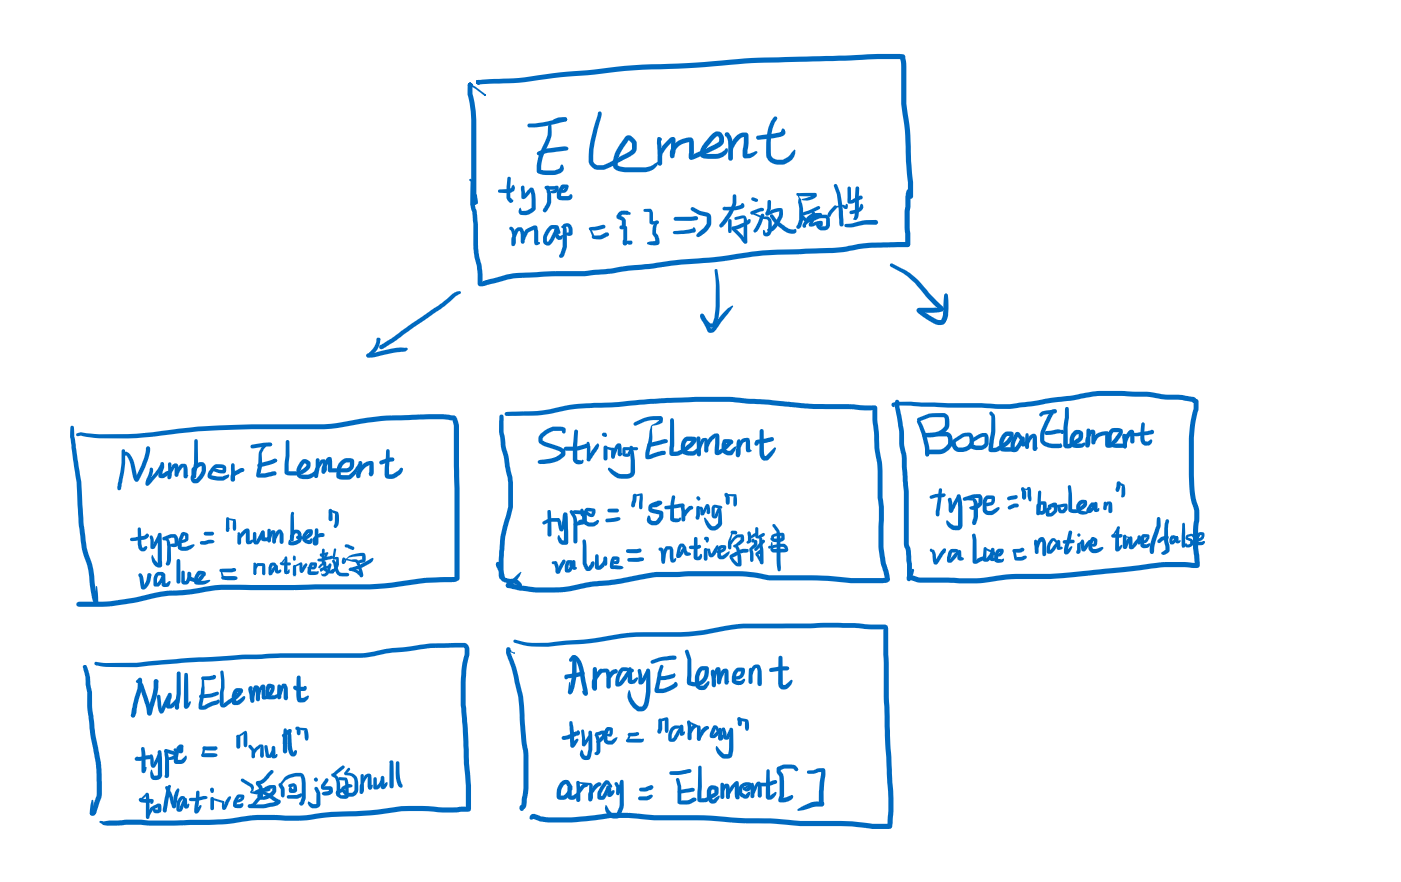 Element
type
map = { } => 存放属性
NumberElement
type = "number"
value = native数字
StringElement
type = "string"
value = native字符串
BooleanElement
type = "boolean"
value = native true/false
NullElement
type = "null"
toNative返回js的null
ArrayElement
type = "array"
array = Element[ ]